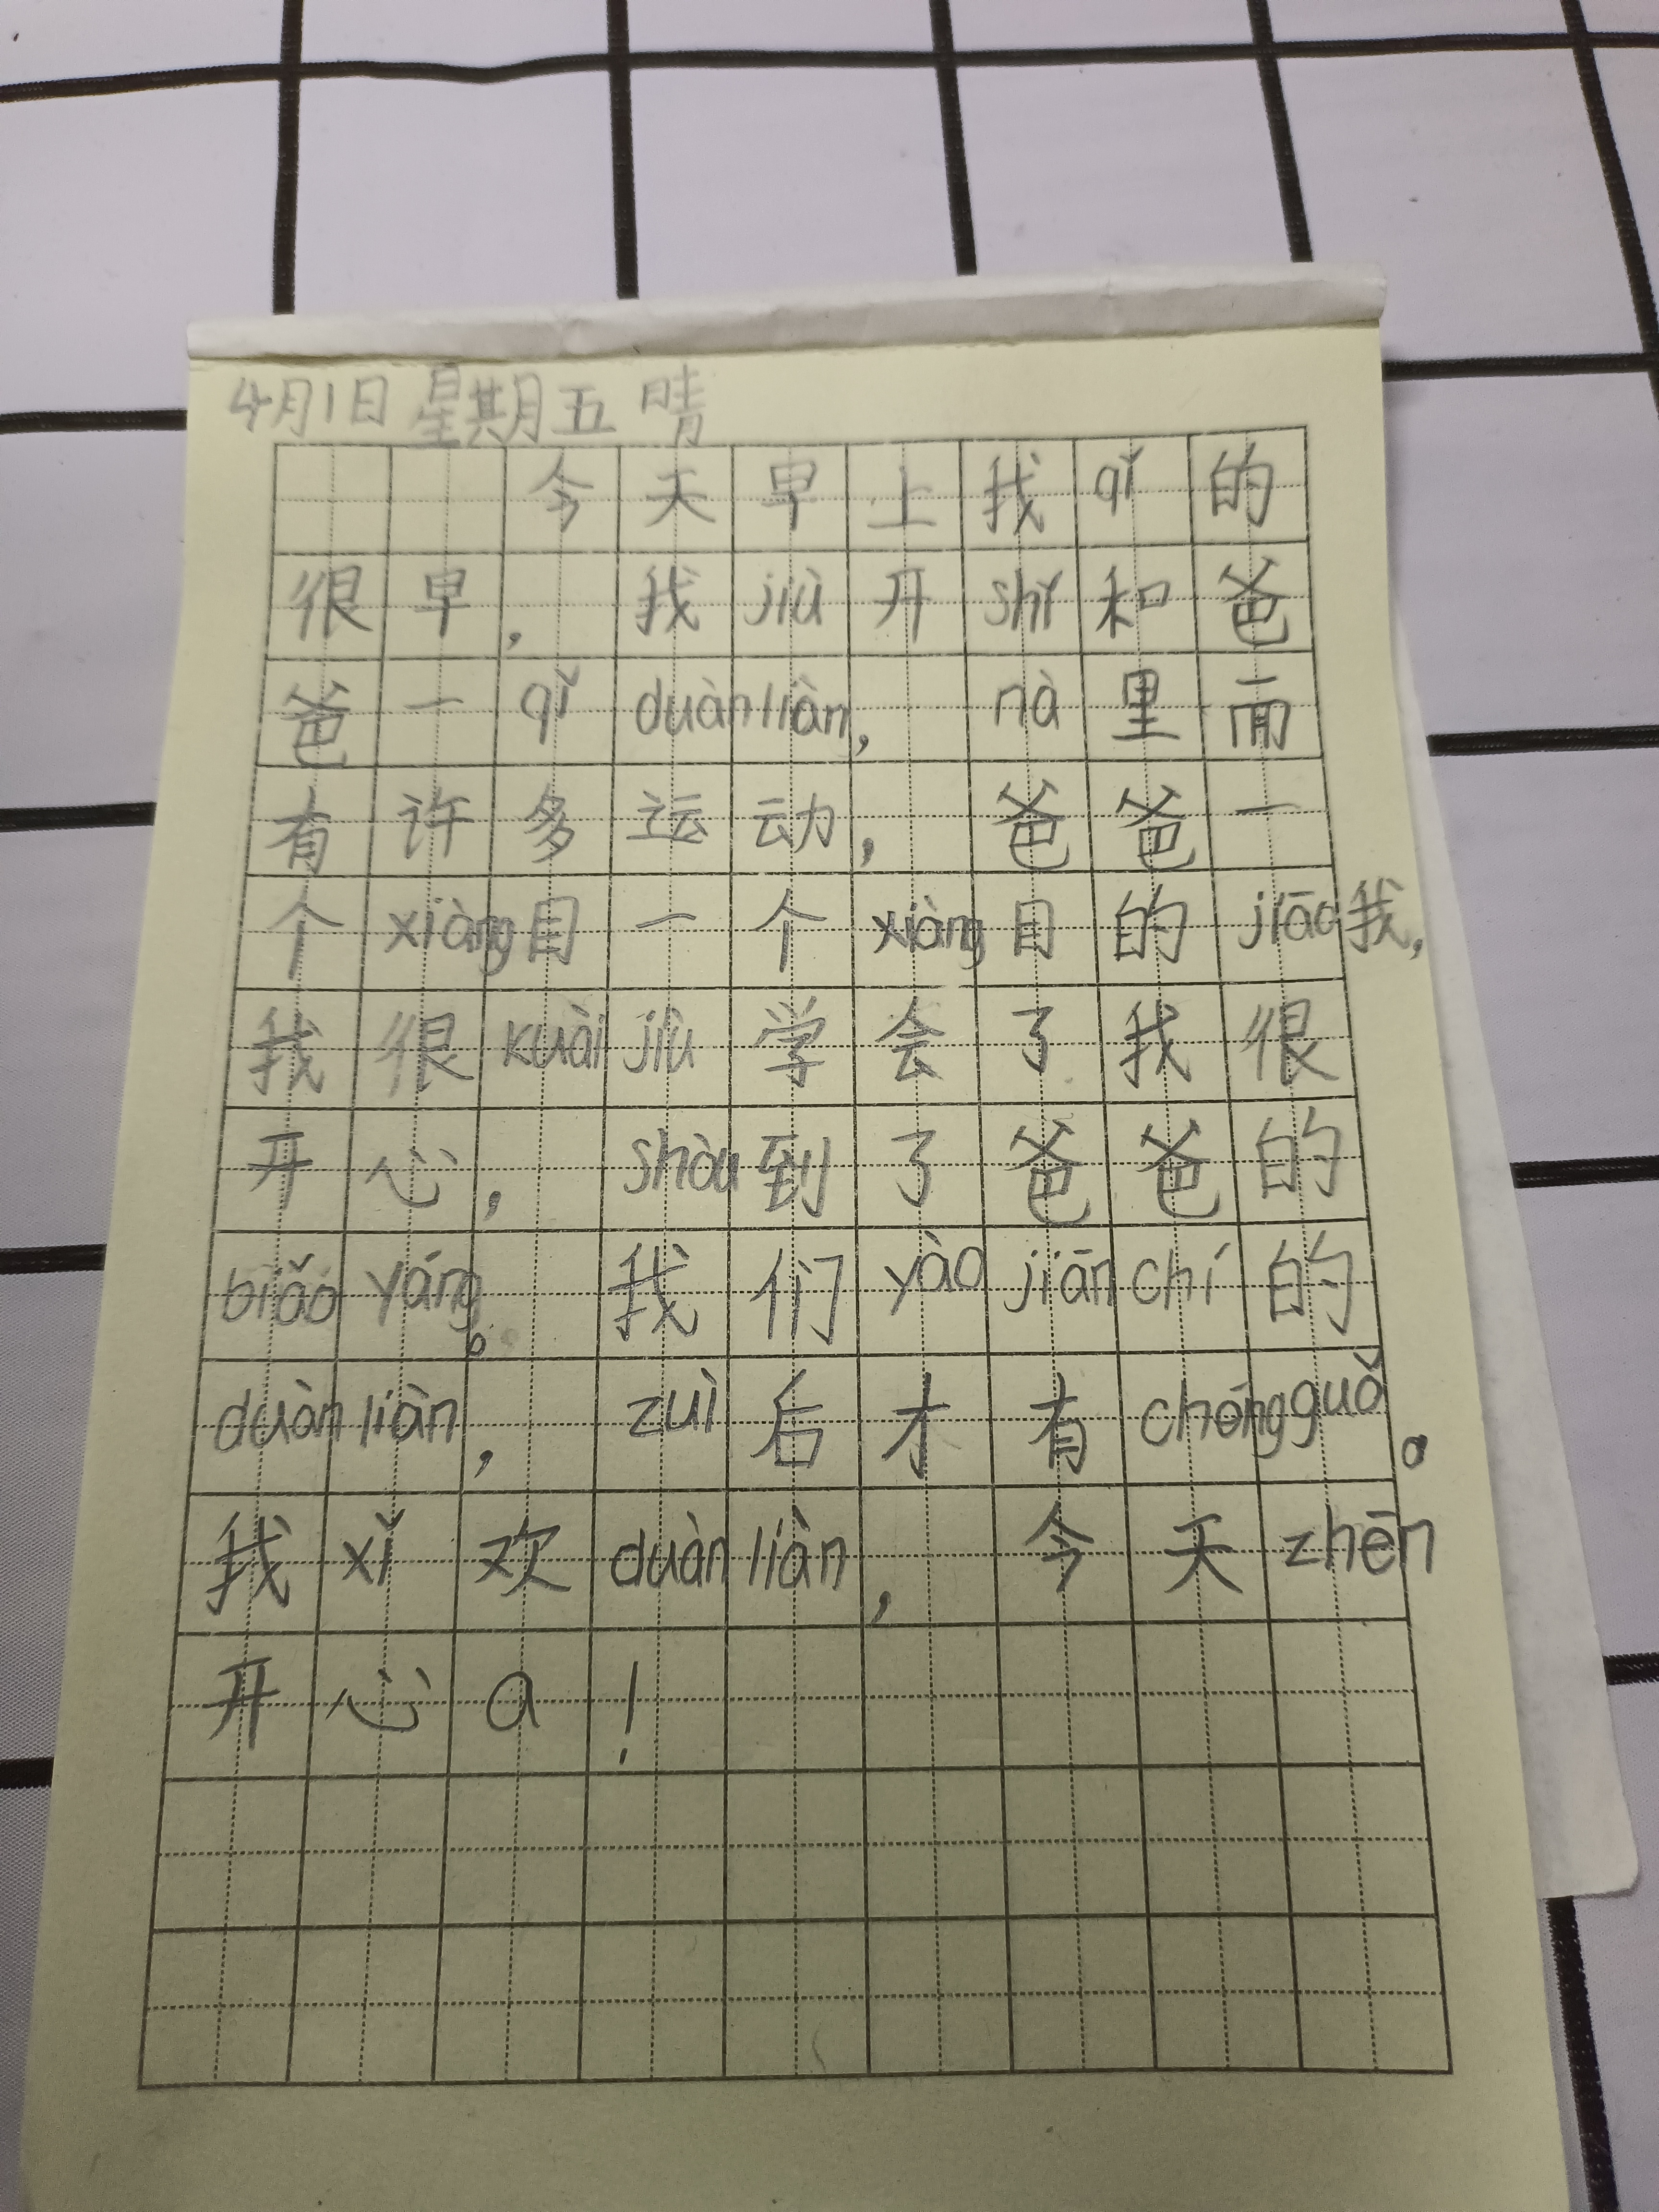 4月1日 星期五 晴
今天早上我qǐ的
很早，我jiù开shǐ和爸
爸一qǐ duànliàn，nà里面
有许多运动，爸爸一
个xiàng目一个xiàng目的jiāo我，
我很kuài jiù学会了我很
开心，shòu到了爸爸的
biǎo yáng。我们yào jiān chí的
duàn liàn，zuì后才有chéngguǒ。
我xǐ欢duàn liàn，今天zhēn
开心a！